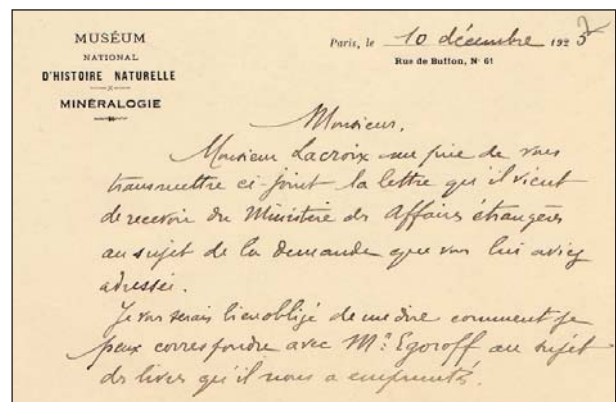 MUSÉUM
NATIONAL
D'HISTOIRE NATURELLE
MINÉRALOGIE
Paris, le 10 décembre 1925
Rue de Buffon, Nº 61
Monsieur,
Monsieur Lacroix me prie de vous
transmettre ci-joint la lettre qu'il vient
de recevoir du Ministère des Affaires étrangères
au sujet de la demande que vous lui aviez
adressée.
Je vous serais bien obligé de me dire comment je
peux correspondre avec Mr. Egoroff au sujet
des livres qu'il nous a empruntés.